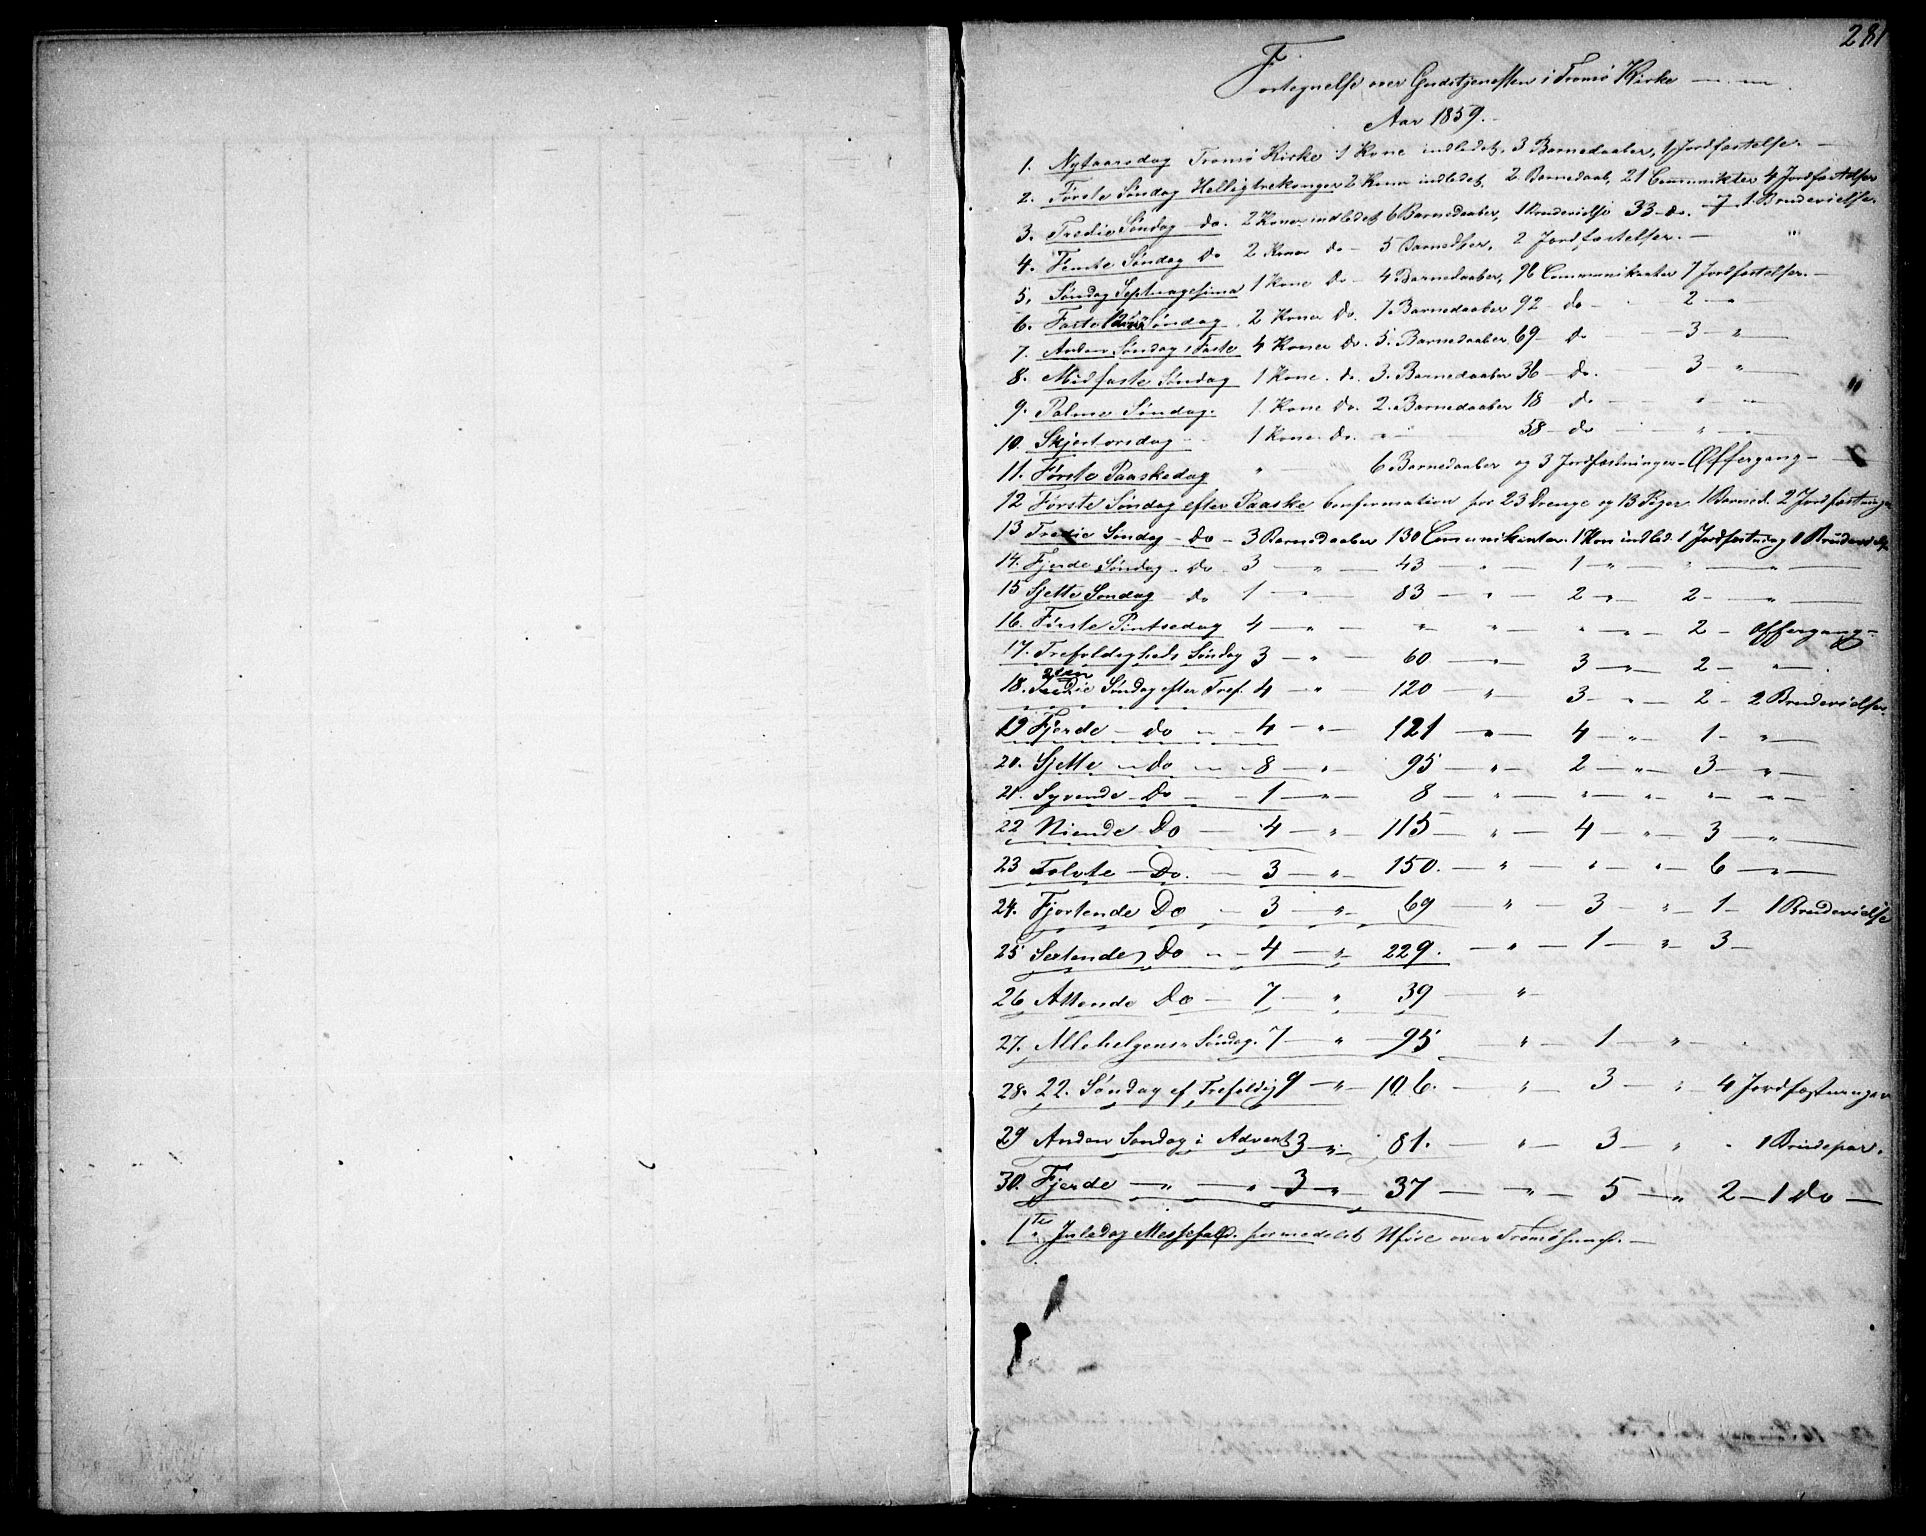 281
Fortegnelse over Gudstjenesten i Tromsø Kirke
Aar 1859.
1. Nytaarsdag Tromsø Kirke 1 Kone indledet, 3 Barnedaaber, 1 Jordfæstelse. —
2. Første Søndag Helligtrekonger 2 Koner indledet, 2 Barnedaab, 21 Communikter 4 Jordfæstelser
3. Tredie Søndag do. 2 Koner indledet 6 Barnedaaber, 1 Brudevielse 33 do. 7 1 Brudevielse.
4. Femte Søndag Do 2 Koner do — 5 Barnedber, 2 Jordfæstelser. — "
5. Søndag Septuagesima 1 Kone do — 4 Barnedaaber, 96 Communikanter 7 Jordfæstelser. —
6. Fastelavns Søndag. 2 Koner do. 7 Barnedaaber 92 do — 2 — "
7. Anden Søndag i Faste 4 Koner do. 5. Barnedaaber 69 — do — 3 — "
8. Midfaste Søndag 1 Kone. do. 3. Barnedaaber 36 — do. — 3 — "
9. Palme Søndag. 1 Kone do. 2. Barnedaaber 18 do — " — "
10. Skjertorsdag 1 Kone. do. " — 58 — do — " —
11. Første Paaskedag " — " 6 Barnedaaber og 3 Jordfæstninger — Offergang —
12 Første Søndag efter Paaske Confirmation for 23 Drenge og 13 Piger 1 Barned. 2 Jordfæstninger
13 Tredie Søndag — do — 3 Barnedaaber 130 Comunikanter. 1 Kon indled. 1 Jordfæstning 1 Brudevielse
14. Fjerde Søndag. do. 3 — " — 43 — " — 1 — " — " — " —
15 Sjette Søndag — do 1 — " — 83 — " — 2 — " — 2 — " —
16. Første Pintsedag 4 — " — " — " — " — " — 2 — Offergang —
17. Trefoldigheds Søndag 3 — " — 60 — " — 3 — " — 2 — " —
18. 2den Søndag efter Tref. 4 — " — 120 — " — 3 — " — 2 — 2 Brudevielser.
19 Fjerde — do — 4 — " — 121 — " — 4 — " — 1 — " —
20. Sjette — do — 8 — " — 95 — " — 2 — " — 3 — " —
21. Syvende — Do — 1 — " — 8 — " — " — " — " — " —
22 Niende Do — 4 — " — 115 — " — 4 — " — 3 — " —
23 Tolvte — Do. — 3 — " — 150. — " — " — " 6 — " —
24. Fjortende Do — 3 — " — 69 — " — 3 — " — 1 — 1 Brudevielse
25 Sextende Do — 4 — " — 229. — " — 1 — " — 3 —
26 Attende Do — 7 — " 39 — "
27. Allehelgens Søndag. 7 — " — 95 " — 1 — " — .
28. 22. Søndag ef. Trefoldig 9 — " — 106. — " — 3 — " 4 Jordfæstninger
29 Anden Søndag i Advent 3 — " 81. — " — 3 — " . 1 Brudepar.
30. Fjerde — " — " 3 — " — 37 — " — 5 — " 2 — 1 Do —
1te Juledag Messefald. formedelst Uføre over Tromsøsund. —